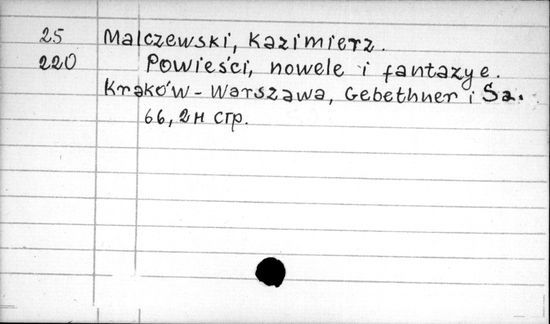 25 Malczewski, Kazimierz.
220 Powieści, nowele i fantazye.
Kraków - Warszawa, Gebethner i Sa.
66, 2н стр.